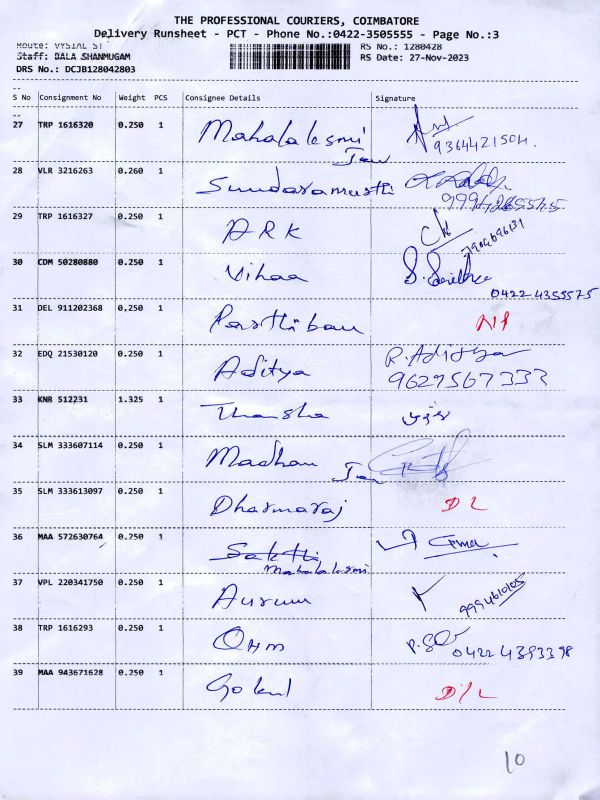 THE PROFESSIONAL COURIERS, COIMBATORE
Delivery Runsheet - PCT - Phone No.:0422-3505555 - Page No.:3
Route: VYSIAL ST RS No.: 1280428
Staff: BALA SHANMUGAM RS Date: 27-Nov-2023
DRS No.: DCJB128042803
S No Consignment No Weight PCS Consignee Details Signature
27 TRP 1616320 0.250 1 Mahalalesmi
9364421504.
28 VLR 3216263 0.260 1 Sundaramurthi
29 TRP 1616327 0.250 1 ARK
30 CDM 50280880 0.250 1 Vihaa
0422 4355575
31 DEL 911202368 0.250 1 Parthiban
32 EDQ 21530120 0.250 1 Aditya R. Aditya
9629567333
33 KNR 512231 1.325 1 Thansha
34 SLM 333607114 0.250 1 Madhan
35 SLM 333613097 0.250 1 Dharmaraj DL
36 MAA 572630764 0.250 1 Sakthi
Mahalalesmi
37 VPL 220341750 0.250 1 Aurum
9994610105
38 TRP 1616293 0.250 1 OHM
0422 4393398
39 MAA 943671628 0.250 1 Gokul D/L
10